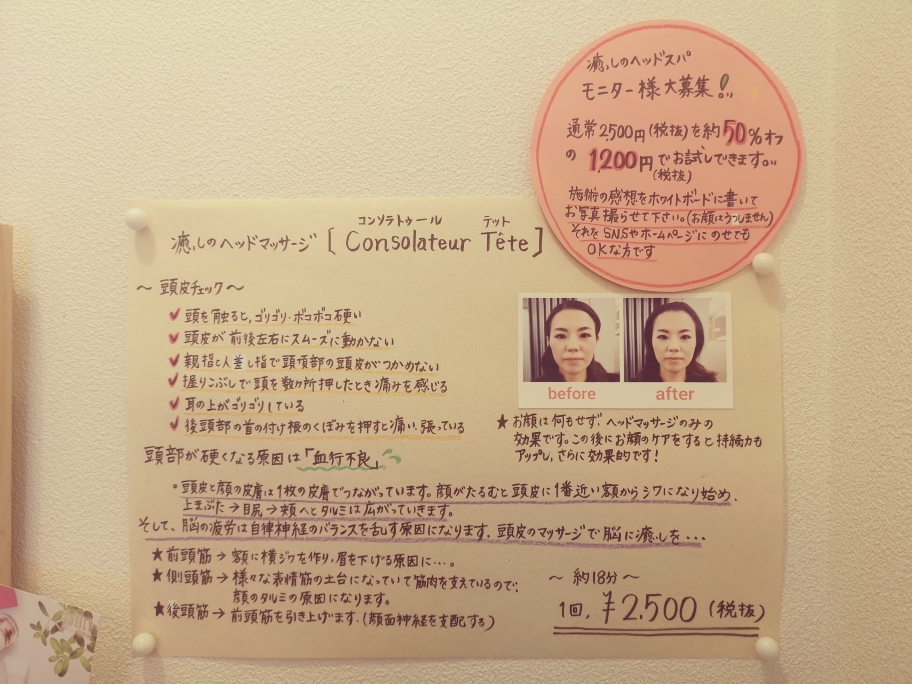 癒しのヘッドスパ
モニター様大募集!!
通常2,500円(税抜)を約50%オフ
の 1,200円でお試しできます。
(税抜)
施術の感想をホワイトボードに書いて
お写真撮らせて下さい。(お顔はうつしません)
それをSNSやホームページにのせても
OKな方です
コンソラトゥール テット
癒しのヘッドマッサージ [Consolateur Tête]
〜 頭皮チェック 〜
✔ 頭を触ると、ゴリゴリ・ボコボコ硬い
✔ 頭皮が前後左右にスムーズに動かない
✔ 親指と人差し指で頭頂部の頭皮がつかめない
✔ 握りこぶしで頭を数ヶ所押したとき痛みを感じる
✔ 耳の上がゴリゴリしている
✔ 後頭部の首の付け根のくぼみを押すと痛い、張っている
before after
★ お顔は何もせず、ヘッドマッサージのみの
効果です。この後にお顔のケアをすると持続力も
アップし、さらに効果的です!
頭部が硬くなる原因は「血行不良」
。頭皮と顔の皮膚は1枚の皮膚でつながっています。顔がたるむと頭皮に1番近い額からシワになり始め、
上まぶた→目尻→頬へとタルミは広がっていきます。
そして、脳の疲労は自律神経のバランスを乱す原因になります。頭皮のマッサージで脳に癒しを・・・
★ 前頭筋 → 額に横ジワを作り、眉を下げる原因に…。
★ 側頭筋 → 様々な表情筋の土台になっていて筋肉を支えているので、
顔のタルミの原因になります。
★ 後頭筋 → 前頭筋を引き上げます。(顔面神経を支配する)
〜 約18分 〜
1回, ¥2,500 (税抜)